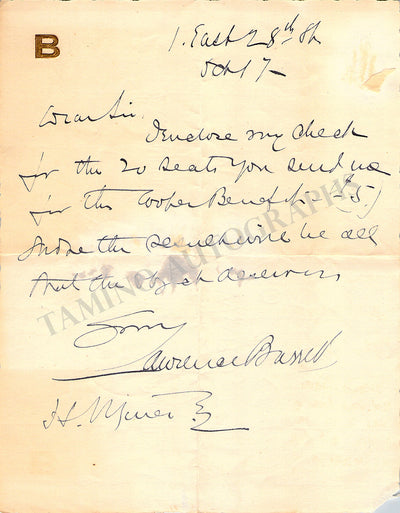 B
1. East 28th St
Oct 17
Dear Sir.
I enclose my check
for the 20 seats you send me
for the Cooper Benefit -
I hope the result will be all
that the object deserves
Yours
Lawrence Barrett
H. Miner
TAMINO AUTOGRAPHS